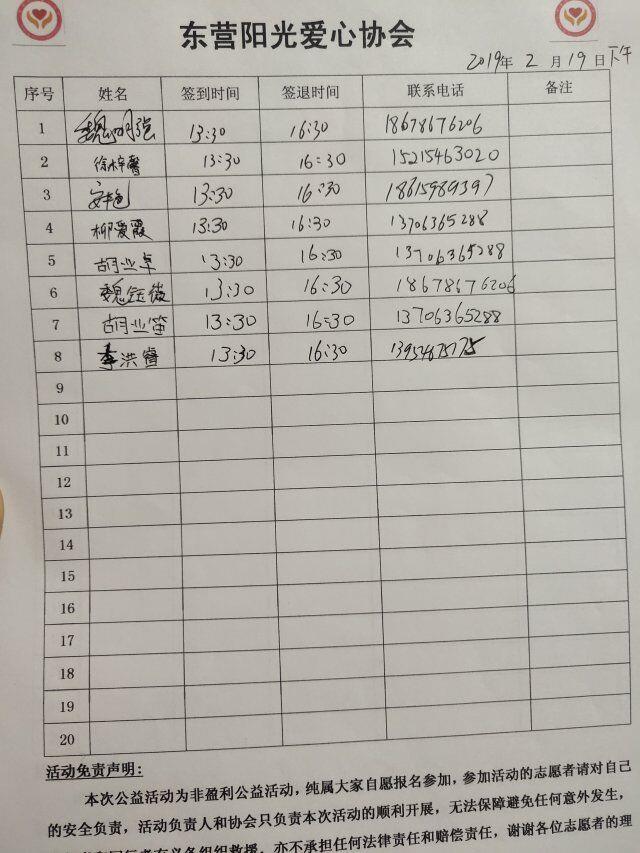 东营阳光爱心协会
2019年 2 月 19 日下午
序号 姓名 签到时间 签退时间 联系电话 备注
1 魏明强 13:30 16:30 18678676206
2 徐梓馨 13:30 16:30 15215463020
3 13:30 16:30 18615989397
4 柳爱霞 13:30 16:30 13706365288
5 胡业卓 13:30 16:30 13706365288
6 魏钰薇 13:30 16:30 18678676206
7 胡业笛 13:30 16:30 13706365288
8 李洪睿 13:30 16:30 13954675175
9
10
11
12
13
14
15
16
17
18
19
20
活动免责声明:
本次公益活动为非盈利公益活动，纯属大家自愿报名参加，参加活动的志愿者请对自己
的安全负责，活动负责人和协会只负责本次活动的顺利开展，无法保障避免任何意外发生，
有义务组织救援。亦不承担任何法律责任和赔偿责任，谢谢各位志愿者的理